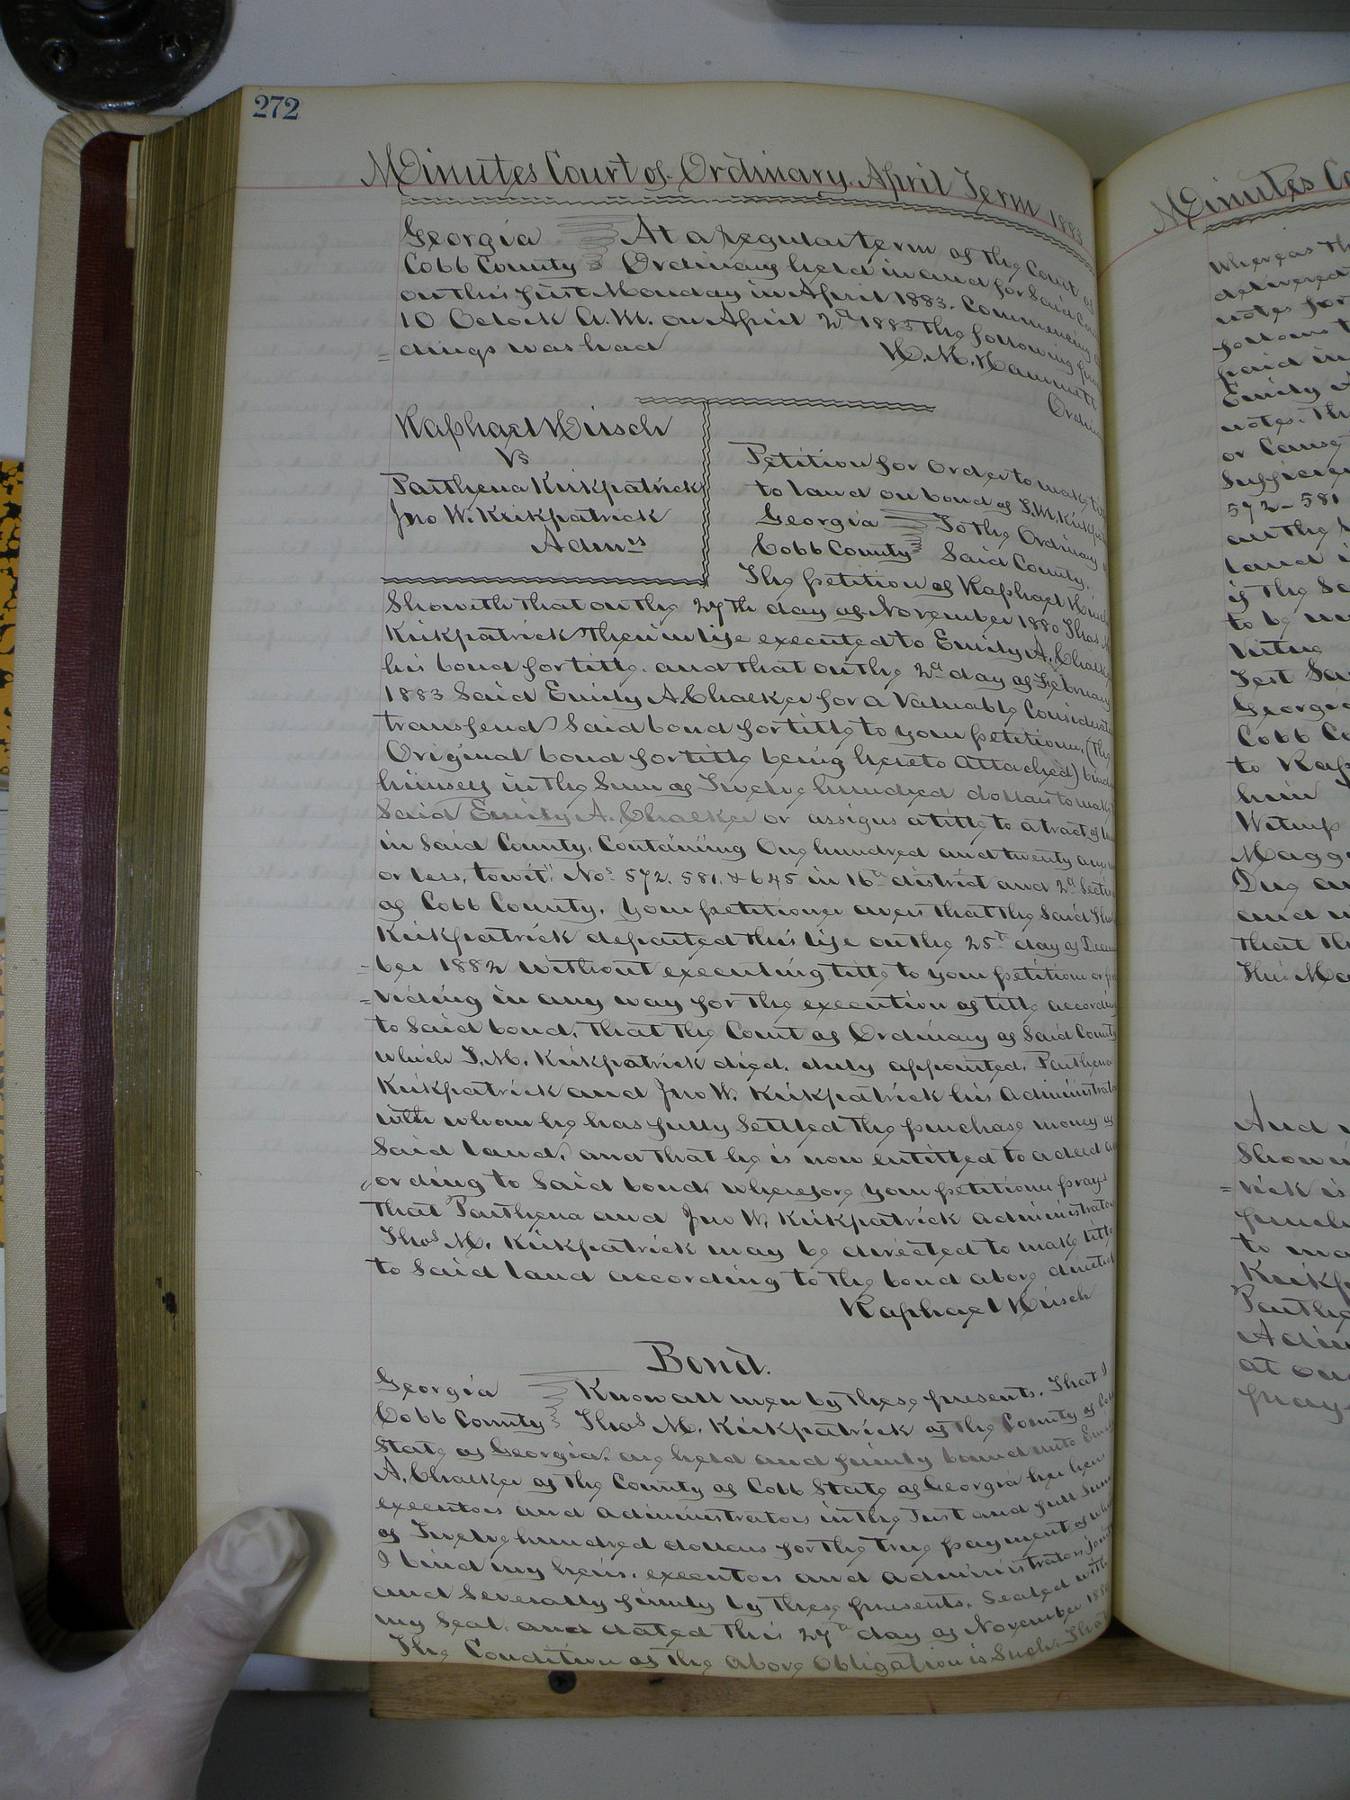 272
Minutes Court of Ordinary April Term 1883
Georgia At a regular term of the Court of
Cobb County Ordinary held in and for Said
on this first Monday in April 1883. Commencing
10 Oclock A.M. on April 2d 1883 the following
dings was had
H. M. Hammett
Raphael Hirsch
Vs
Parthena Kirkpatrick
Jno W. Kirkpatrick
Admrs
Petition for order to make
to land on bond of T.M.
Georgia To the Ordinary
Cobb County Said County.
The petition of Raphael
Showeth that on the 27th day of November 1880 Thos
Kirkpatrick then in life executed to Emily A.
his bond for title. and that on the 2d day of February
1883 Said Emily A. Chalker for a Valuable
transferd Said bond for title to your petitioner, (the
Original bond for title being hereto attached)
himself in the Sum of Twelve hundred dollars to make
Said Emily A. Chalker or assigns a title to a tract of
in Said County, Containing One hundred and twenty
or less, towit" Nos 572, 581, & 645 in 16th district and 2d
of Cobb County, Your petitioner avers that the Said
Kirkpatrick departed this life on the 25th day of Decem
ber 1882 without executing title to your petitioner or
viding in any way for the execution of title
to Said bond, that the Court of Ordinary of Said County
which T. M. Kirkpatrick died, duly appointed, Parthena
Kirkpatrick and Jno W. Kirkpatrick his
with whom he has fully Settled the purchase money of
Said land, and that he is now entitled to a deed
ording to Said bond wherefore your petitioner prays
that Parthena and Jno W. Kirkpatrick
Thos M. Kirkpatrick may be directed to make title
to Said land according to the bond above
Raphael Hirsch
Bond.
Georgia Know all men by these presents, That I
Cobb County Thos M. Kirkpatrick of the County of
State of Georgia, am held and firmly bound unto
A. Chalker of the County of Cobb State of Georgia her
executors and administrators in the Just and full Sum
of Twelve hundred dollars for the true payment of
I bind my heirs, executors and administrators,
and Severally firmly by these presents, Sealed with
my Seal, and dated this 27th day of November
The Condition of the above Obligation is Such, That
Minutes
Whereas
delivered
notes for
paid in
Emily A
notes.
or Cause
572 - 581
on the
land
if the
to be
Virtue
Test
Georgia
Cobb
to
him
Witness
and
that
And
vick is
to
at